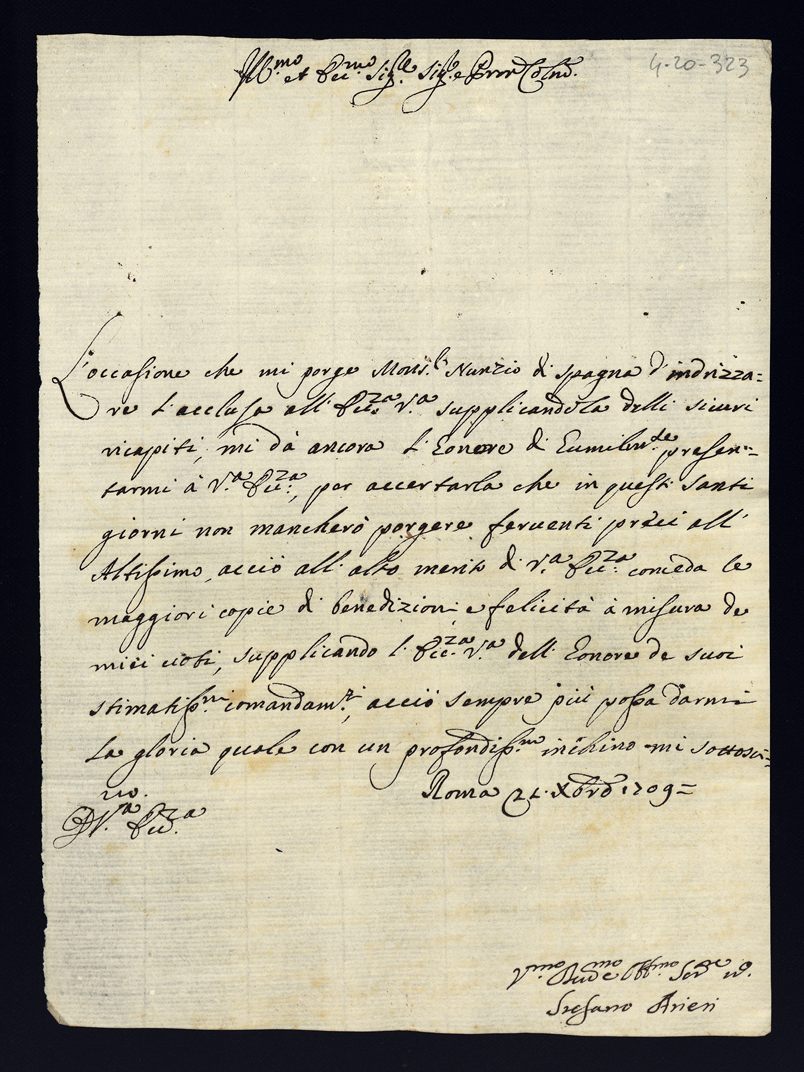 Ill.mo et Ecc.mo Sig.re Sig.e Pron Col.mo
4-20-323
L'occasione che mi porge Mons.r Nunzio di Spagna d'indrizza=
re l'acclusa all' Ecc.za V.a supplicandola delli sicuri
ricapiti, mi dà ancora l'Eonore di Eumilm.te presen=
tarmi à V.a Ecc.za, per accertarla che in questi santi
giorni non mancherò porgere feruenti preci all'
Altissimo, acciò all'alto merito di V.a Ecc.za conceda le
maggiori copie di benedizioni e felicità à misura de
miei uoti, supplicando l'Ecc.za V.a dell'Eonore de suoi
stimatiss.mi comandam.ti, acciò sempre più possa darmi
La gloria quale con un profondiss.mo inchino mi sottoscri=
uo.
Roma 21 Xbre 1709=
D V.a Ecc.za
V.mo Deu.e Obb.mo Ser.re
Stefano Arieri